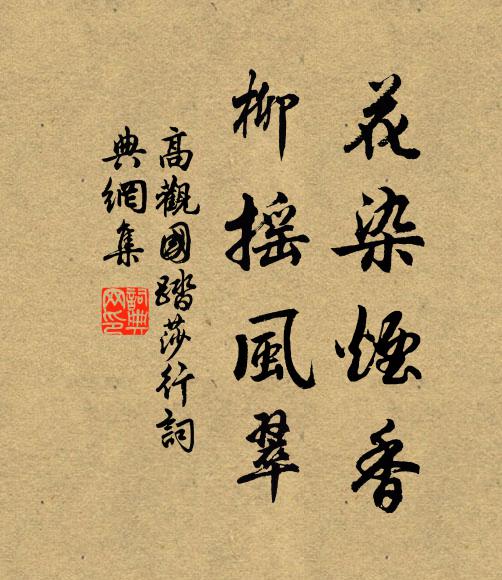 花染煙香
柳搖風翠
高觀國踏莎行詞
典網集
詞典網印